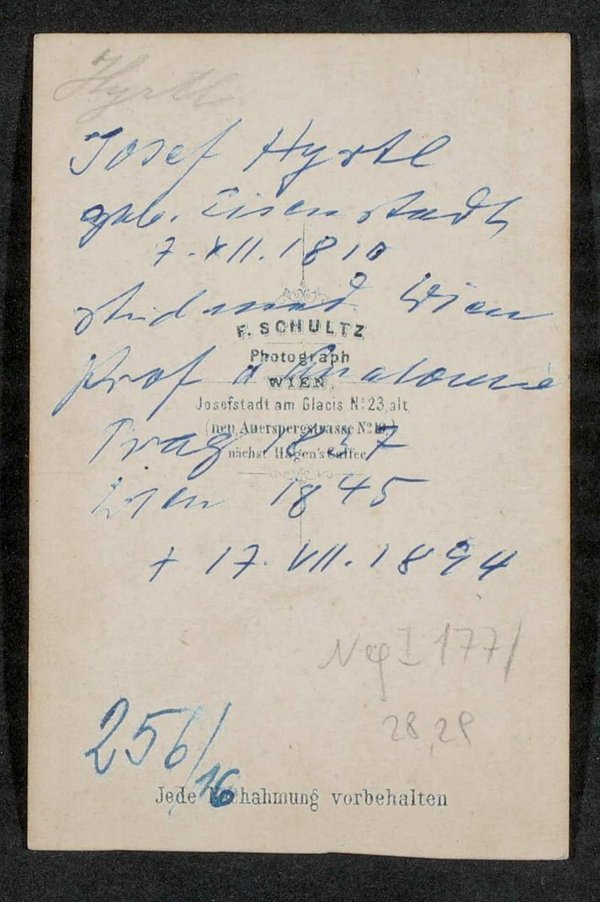 Hyrtl
Josef Hyrtl
geb. Eisenstadt
7. XII. 1810
stud med Wien
F. SCHULTZ
Photograph
WIEN.
Prof d Anatomie
Josefstadt am Glacis No 23, alt
(neu Auerspergstrasse No 19.)
Prag 1837
nächst Hagen's Caffee
Wien 1845
+ 17. VII. 1894
Neg I 177/
28, 29
256/16
Jede Nachahmung vorbehalten